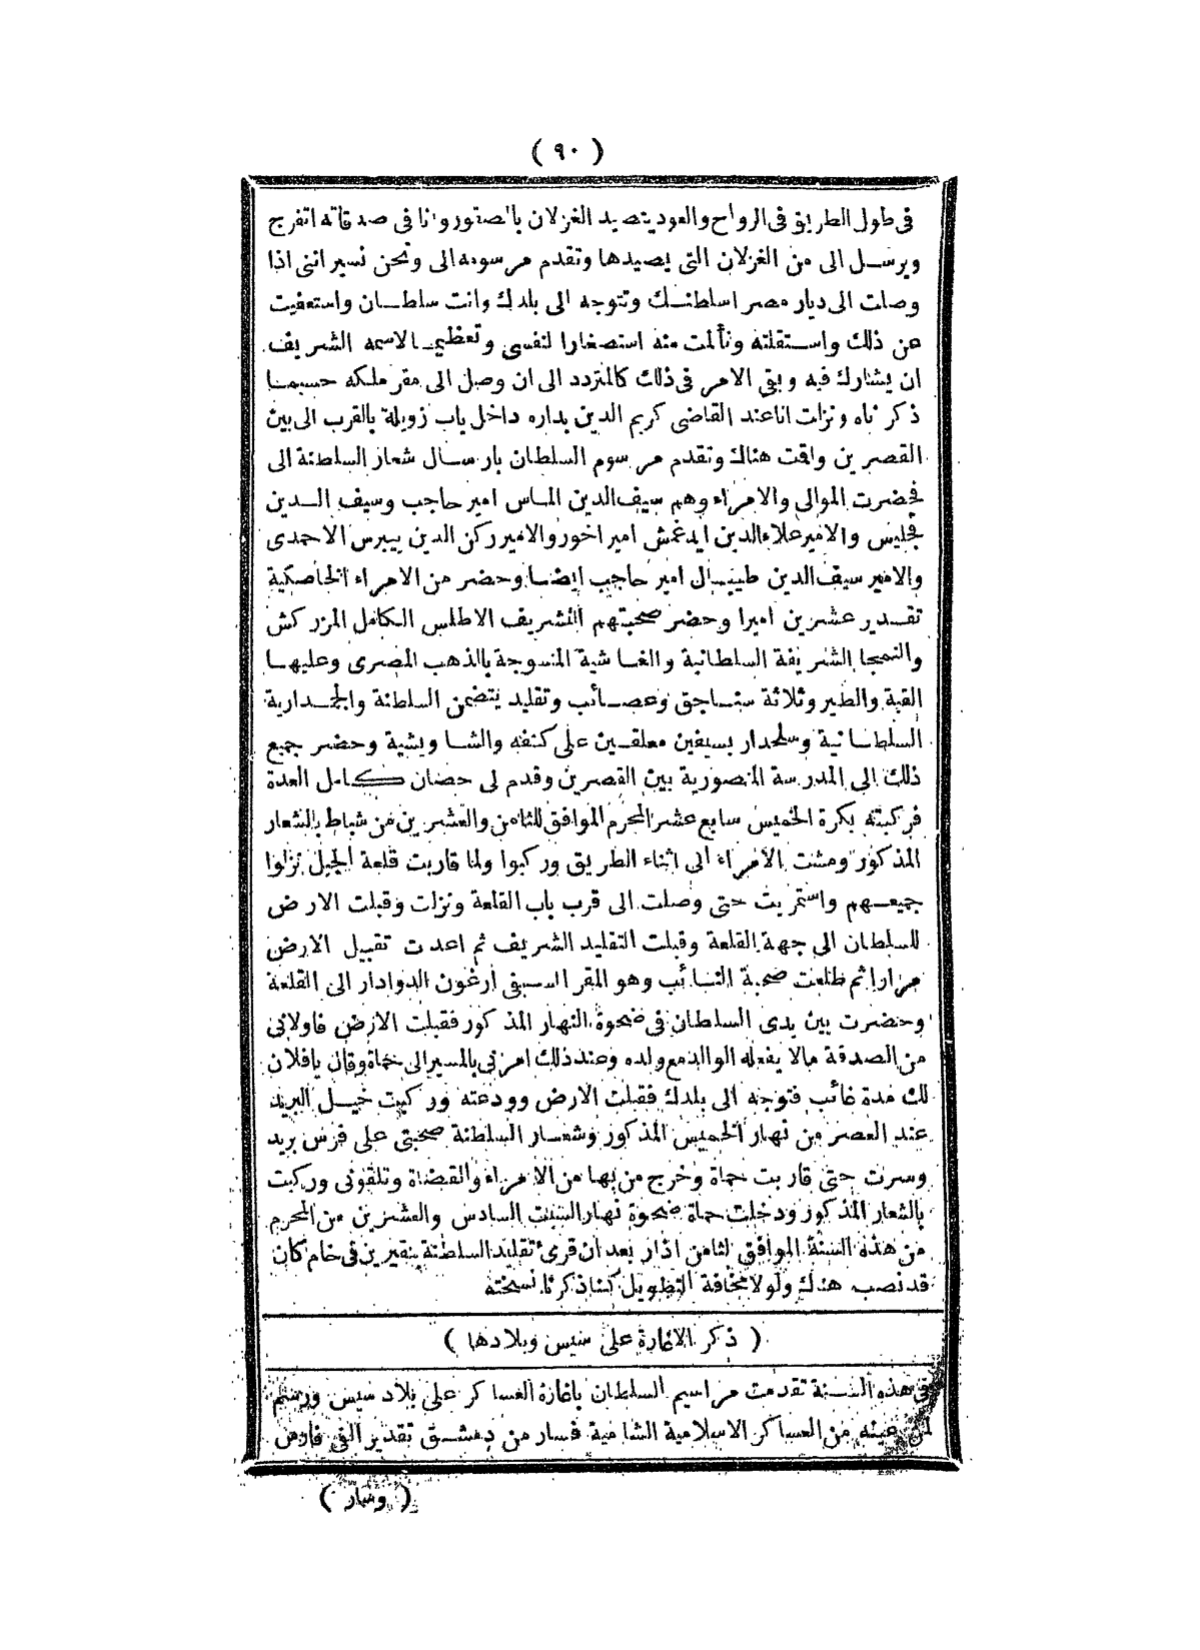 ( ٩٠ )
فى طول الطريق فى الرواح والعود يتصيد الغزلان بالصقور وانا فى صدقاته اتفرج
ويرسل الى من الغزلان التى يصيدها وتقدم مرسومه الى ونحن نسير اننى اذا
وصلت الى ديار مصر اسلطنك وتتوجه الى بلدك وانت سلطان واستعفيت
عن ذلك واستقلته وتألمت منه استصغارا لنفسى وتعظيما لاسمه الشريف
ان يشارك فيه وبقى الامر فى ذلك كالمتردد الى ان وصل الى مقر ملكه حسبما
ذكرناه ونزلت انا عند القاضى كريم الدين بداره داخل باب زويلة بالقرب الى بين
القصرين واقت هناك وتقدم مرسوم السلطان بارسال شعار السلطنة الى
فحضرت الموالى والامراء وهم سيف الدين الماس امير حاجب وسيف الدين
قجليس والامير علاء الدين ايدغمش امير اخور والامير ركن الدين بيبرس الاحمدى
والامير سيف الدين طيبال امير حاجب ايضا وحضر من الامراء الخاصكية
تقدير عشرين اميرا وحضر صحبتهم التشريف الاطلس الكامل المزركش
والنمجا الشريفة السلطانية والغاشية المنسوجة بالذهب المصرى وعليها
القبة والطير وثلاثة سناجق وعصائب وتقليد يتضمن السلطنة والجمدارية
السلطانية وسلحدار بسيفين معلقين على كتفه والشاويشية وحضر جميع
ذلك الى المدرسة المنصورية بين القصرين وقدم لى حصان كامل العدة
فركبته بكرة الخميس سابع عشر المحرم الموافق للثامن والعشرين من شباط بالشعار
المذكور ومشت الامراء الى اثناء الطريق وركبوا ولما قاربت قلعة الجبل نزلوا
جميعهم واستمريت حتى وصلت الى قرب باب القلعة ونزلت وقبلت الارض
للسلطان الى جهة القلعة وقبلت التقليد الشريف ثم اعدت تقبيل الارض
مرارا ثم طلعت صحبة النائب وهو المقر السيفى ارغون الدوادار الى القلعة
وحضرت بين يدى السلطان فى ضحوة النهار المذكور فقبلت الارض فاولانى
من الصدقة مالا يفعله الوالد مع ولده وعند ذلك امرنى بالمسير الى حماة وقال يافلان
لك مدة غائب فتوجه الى بلدك فقبلت الارض وودعته وركبت خيل البريد
عند العصر من نهار الخميس المذكور وشعار السلطنة صحبتى على فرس بريد
وسرت حتى قاربت حماة وخرج من بها من الامراء والقضاة وتلقونى وركبت
بالشعار المذكور ودخلت حماة ضحوة نهار السبت السادس والعشرين من المحرم
من هذه السنة الموافق لثامن اذار بعد ان قرئ تقليد السلطنة بنقيرين فى خام كان
قد نصب هناك ولولا مخافة التطويل كنا ذكرنا نسخته
( ذكر الاغارة على سيس وبلادها )
فى هذه السنة تقدمت مراسيم السلطان باغارة العساكر على بلاد سيس ورسم
لمن عينه من العساكر الاسلامية الشامية فسار من دمشق تقدير الفى فارس
( وسار )